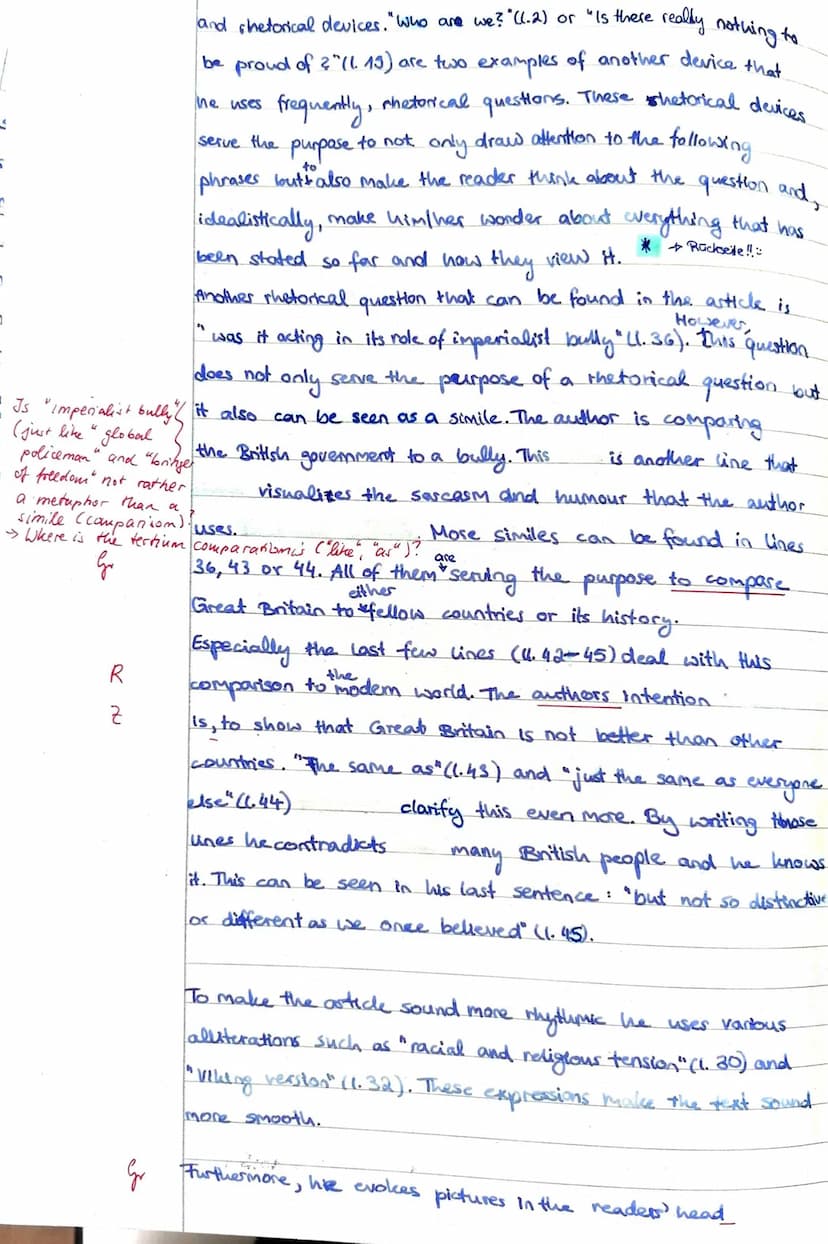 and rhetorical devices. "Who are we?" (l.2) or "Is there really nothing to
be proud of?" (l. 19) are two examples of another device that
he uses frequently, rhetorical questions. These rhetorical devices
serve the purpose to not only draw attention to the following
to
phrases but also make the reader think about the question and,
idealistically, make him/her wonder about everything that has
* → Rückseite!! :-
been stated so far and how they view it.
Another rhetorical question that can be found in the article is
However,
"was it acting in its role of imperialist bully" (l. 36). this question
does not only serve the purpose of a rhetorical question but
it also can be seen as a simile. The author is comparing
the British government to a bully. This is another line that
visualizes the sarcasm and humour that the author
uses. More similes can be found in lines
Is "imperialist bully"
(just like "global
policeman" and "bringer
of freedom" not rather
a metaphor than a
simile (comparison)?
→ Where is the tertium comparationis ("like", "as")?
are
Gr 36, 43 or 44. All of them serving the purpose to compare
either
Great Britain to fellow countries or its history.
Especially the last few lines (ll. 42-45) deal with this
the
R comparison to modern world. The authors intention
Z is, to show that Great Britain is not better than other
countries. "The same as" (l.43) and "just the same as everyone
else" (l.44) clarify this even more. By writing those
lines he contradicts many British people and he knows
it. This can be seen in his last sentence: "but not so distinctive
or different as we once believed" (l. 45).
To make the article sound more rhythmic he uses various
alliterations such as "racial and religious tension" (l. 30) and
"Viking version" (l. 32). These expressions make the text sound
more smooth.
Gr Furthermore, he evokes pictures in the readers' head